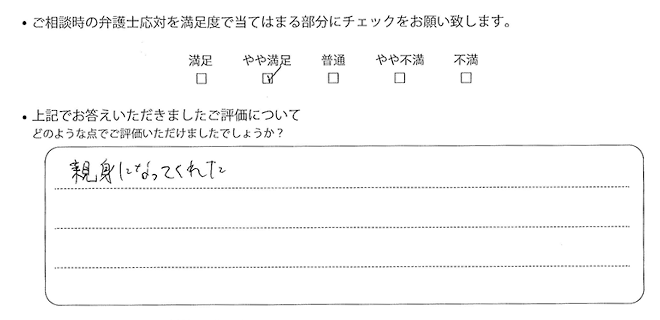 ・ご相談時の弁護士応対を満足度で当てはまる部分にチェックをお願い致します。
満足 やや満足 普通 やや不満 不満
□ ☑ □ □ □
・上記でお答えいただきましたご評価について
どのような点でご評価いただけましたでしょうか？
親身になってくれた